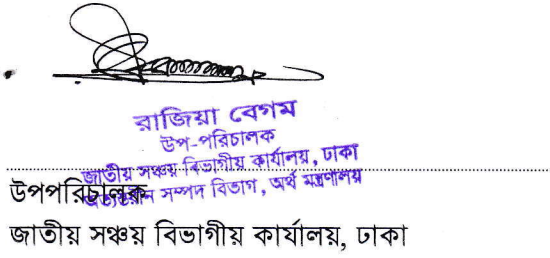 রাজিয়া বেগম
উপ-পরিচালক
জাতীয় সঞ্চয় বিভাগীয় কার্যালয়, ঢাকা
অভ্যন্তরীন সম্পদ বিভাগ, অর্থ মন্ত্রণালয়
উপপরিচালক
জাতীয় সঞ্চয় বিভাগীয় কার্যালয়, ঢাকা